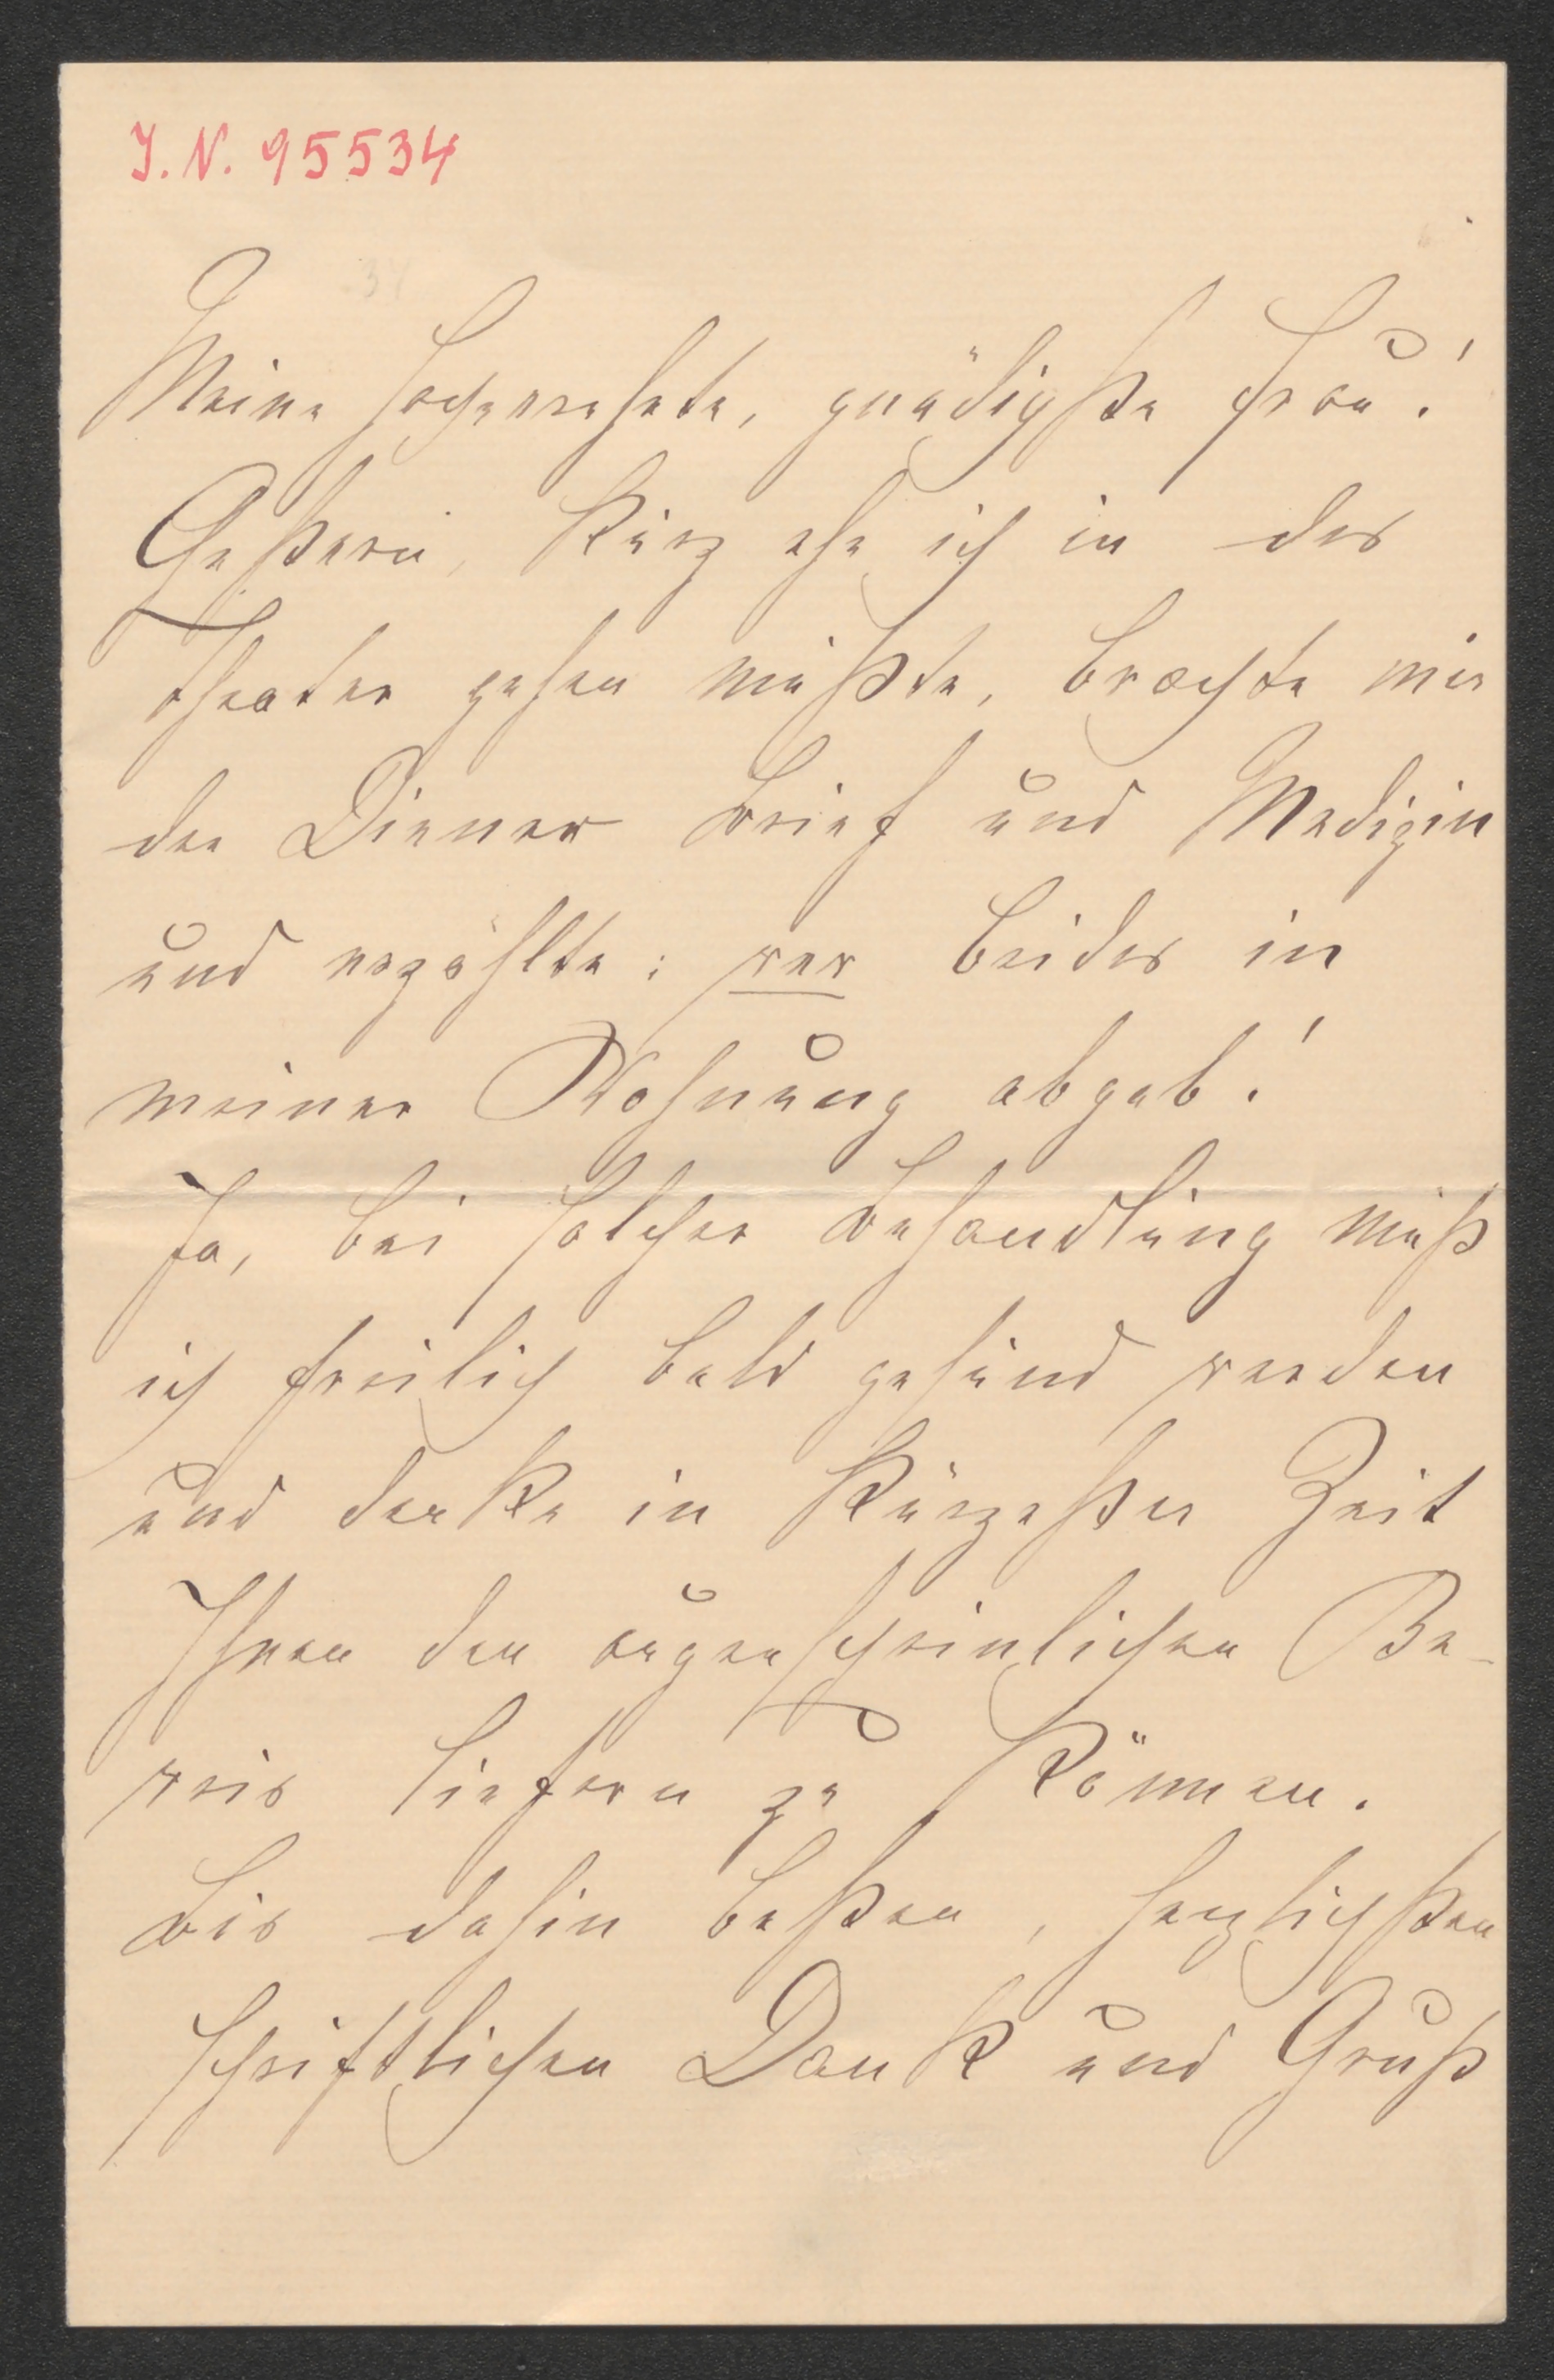 J. N. 95534
Meine hochverehrte, gnädigste Frau!
Gestern, kurz ehe ich in das
Theater gehen mußte, brachte mir
der Diener Brief und Medizin
und erzählte: wer beides in
meiner Wohnung abgab!
Ja, bei solcher Behandlung muß
ich freilich bald gesund werden
und denke in kürzester Zeit
Ihnen den augenscheinlichen Be-
weis liefern zu können.
Bis dahin besten, herzlichsten
schriftlichen Dank und Gruß